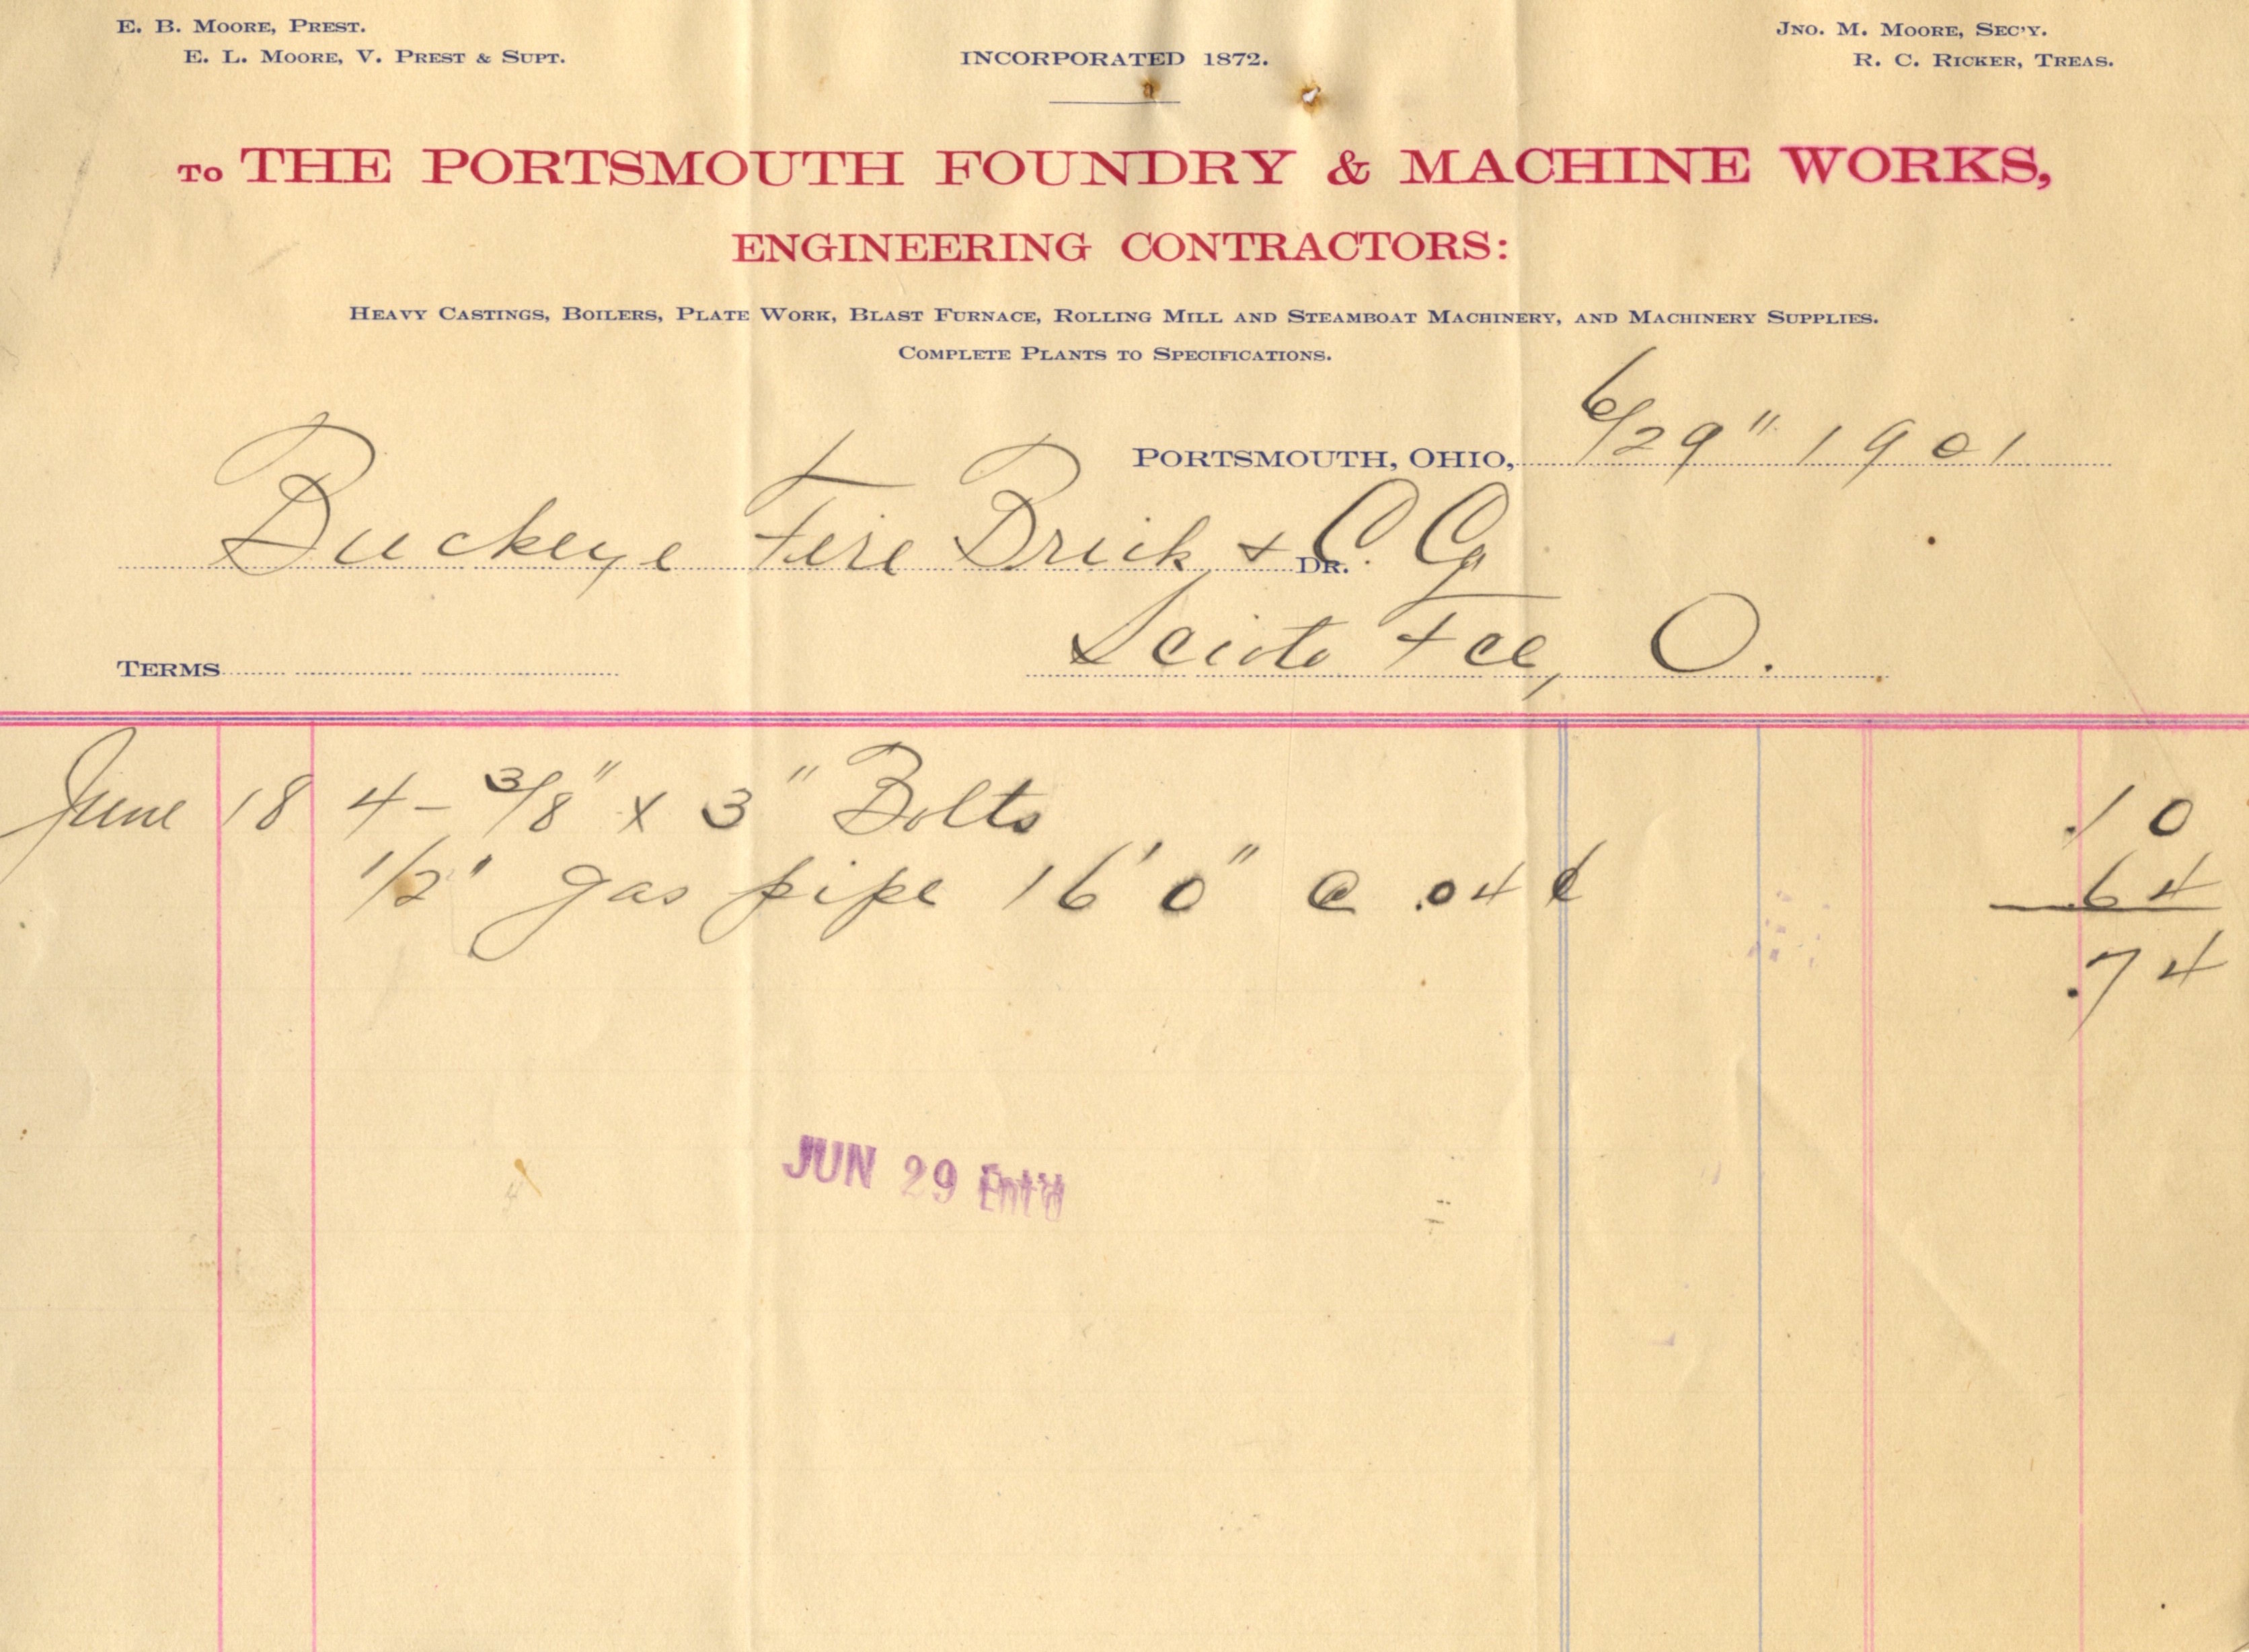 E. B. Moore, Prest.
E. L. Moore, V. Prest & Supt.
INCORPORATED 1872.
Jno. M. Moore, Sec'y.
R. C. Ricker, Treas.
To THE PORTSMOUTH FOUNDRY & MACHINE WORKS,
ENGINEERING CONTRACTORS:
Heavy Castings, Boilers, Plate Work, Blast Furnace, Rolling Mill and Steamboat Machinery, and Machinery Supplies.
Complete Plants to Specifications.
PORTSMOUTH, OHIO, 6/29" 1901
Buckeye Fire Brick & C. Co Dr.
Terms Scioto Fce, O.
June 18 4 - 3/8" x 3" Bolts .10
1/2" gas pipe 16'0" @ .04¢ .64
.74
JUN 29 Ent'd